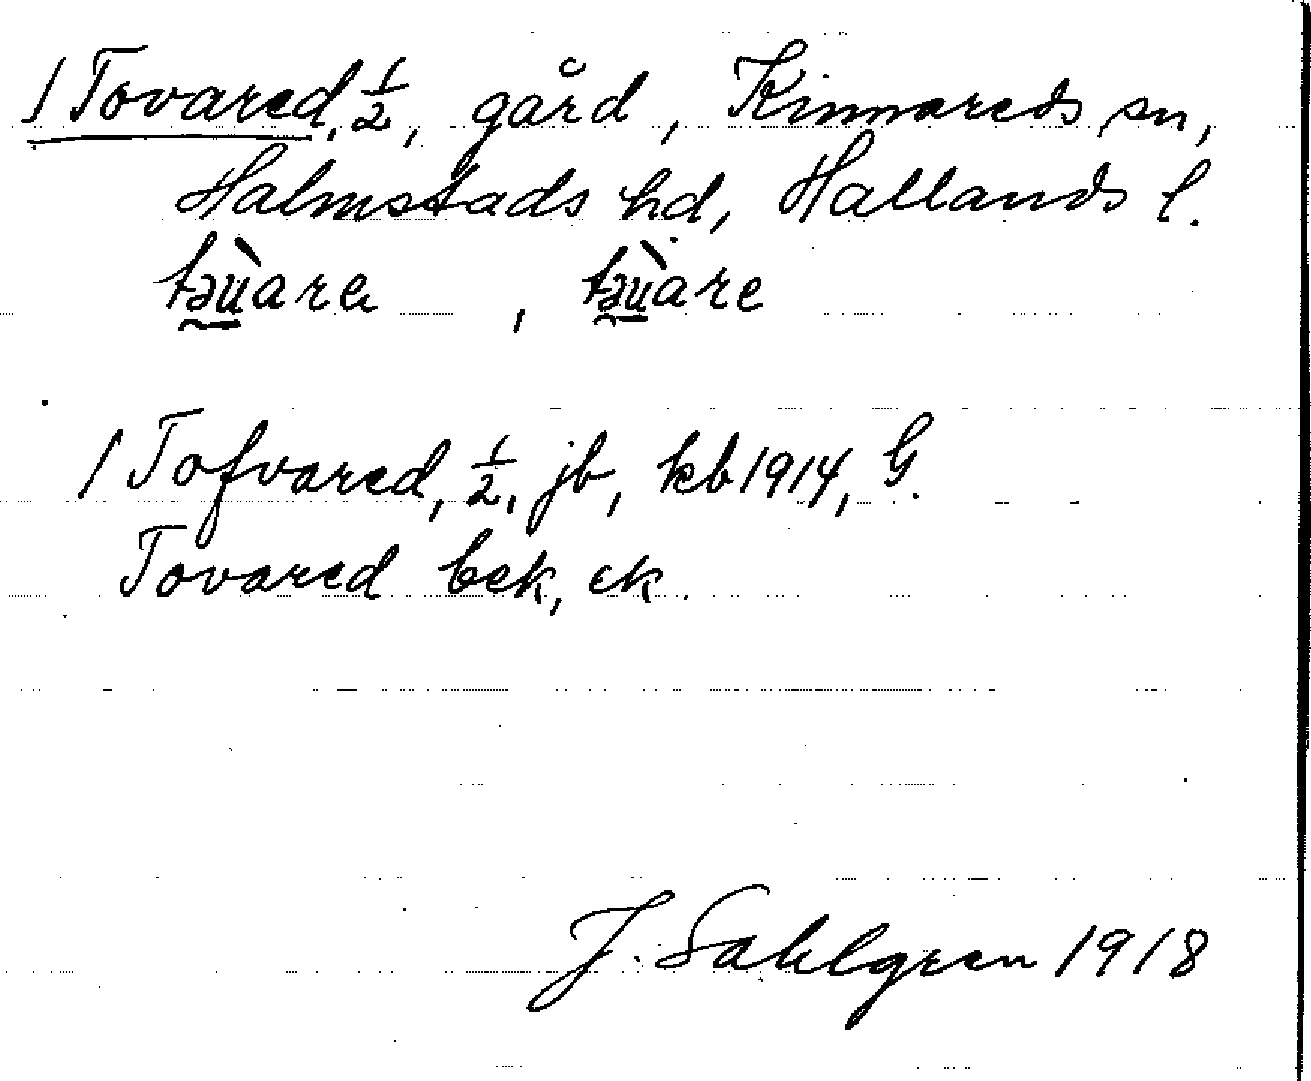 1 Tovared, ½, gård, Kinnareds sn,
Halmstads hd, Hallands l.
tǝù̱are , tǝù̱are
1 Tofvared, ½, jb, kb 1914, G.
Tovared bek, ek.
J. Sahlgren 1918